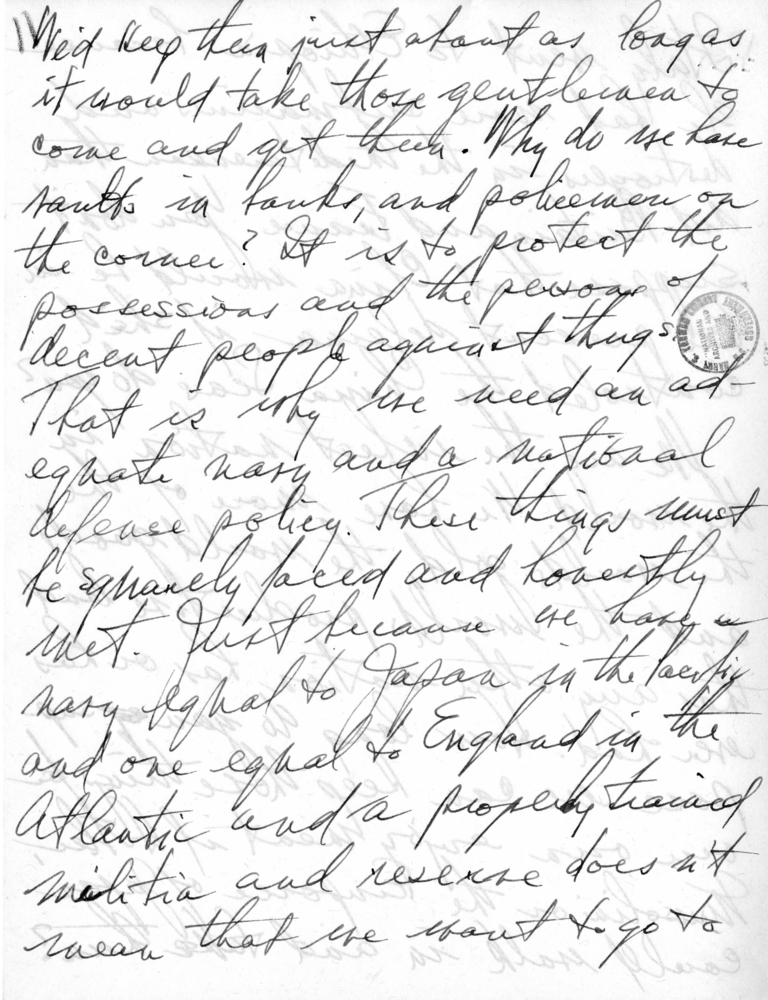 IV
We'd keep them just about as long as
it would take those gentlemen to
come and get them. Why do we have
vaults in banks, and policemen on
the corner? It is to protect the
possessions and the persons of
decent people against thugs.
That is why we need an ad-
equate navy and a national
defense policy. These things must
be squarely faced and honestly
met. Just because we have a
navy equal to Japan in the Pacific
and one equal to England in the
Atlantic and a properly trained
militia and reserve does n't
mean that we want to go to